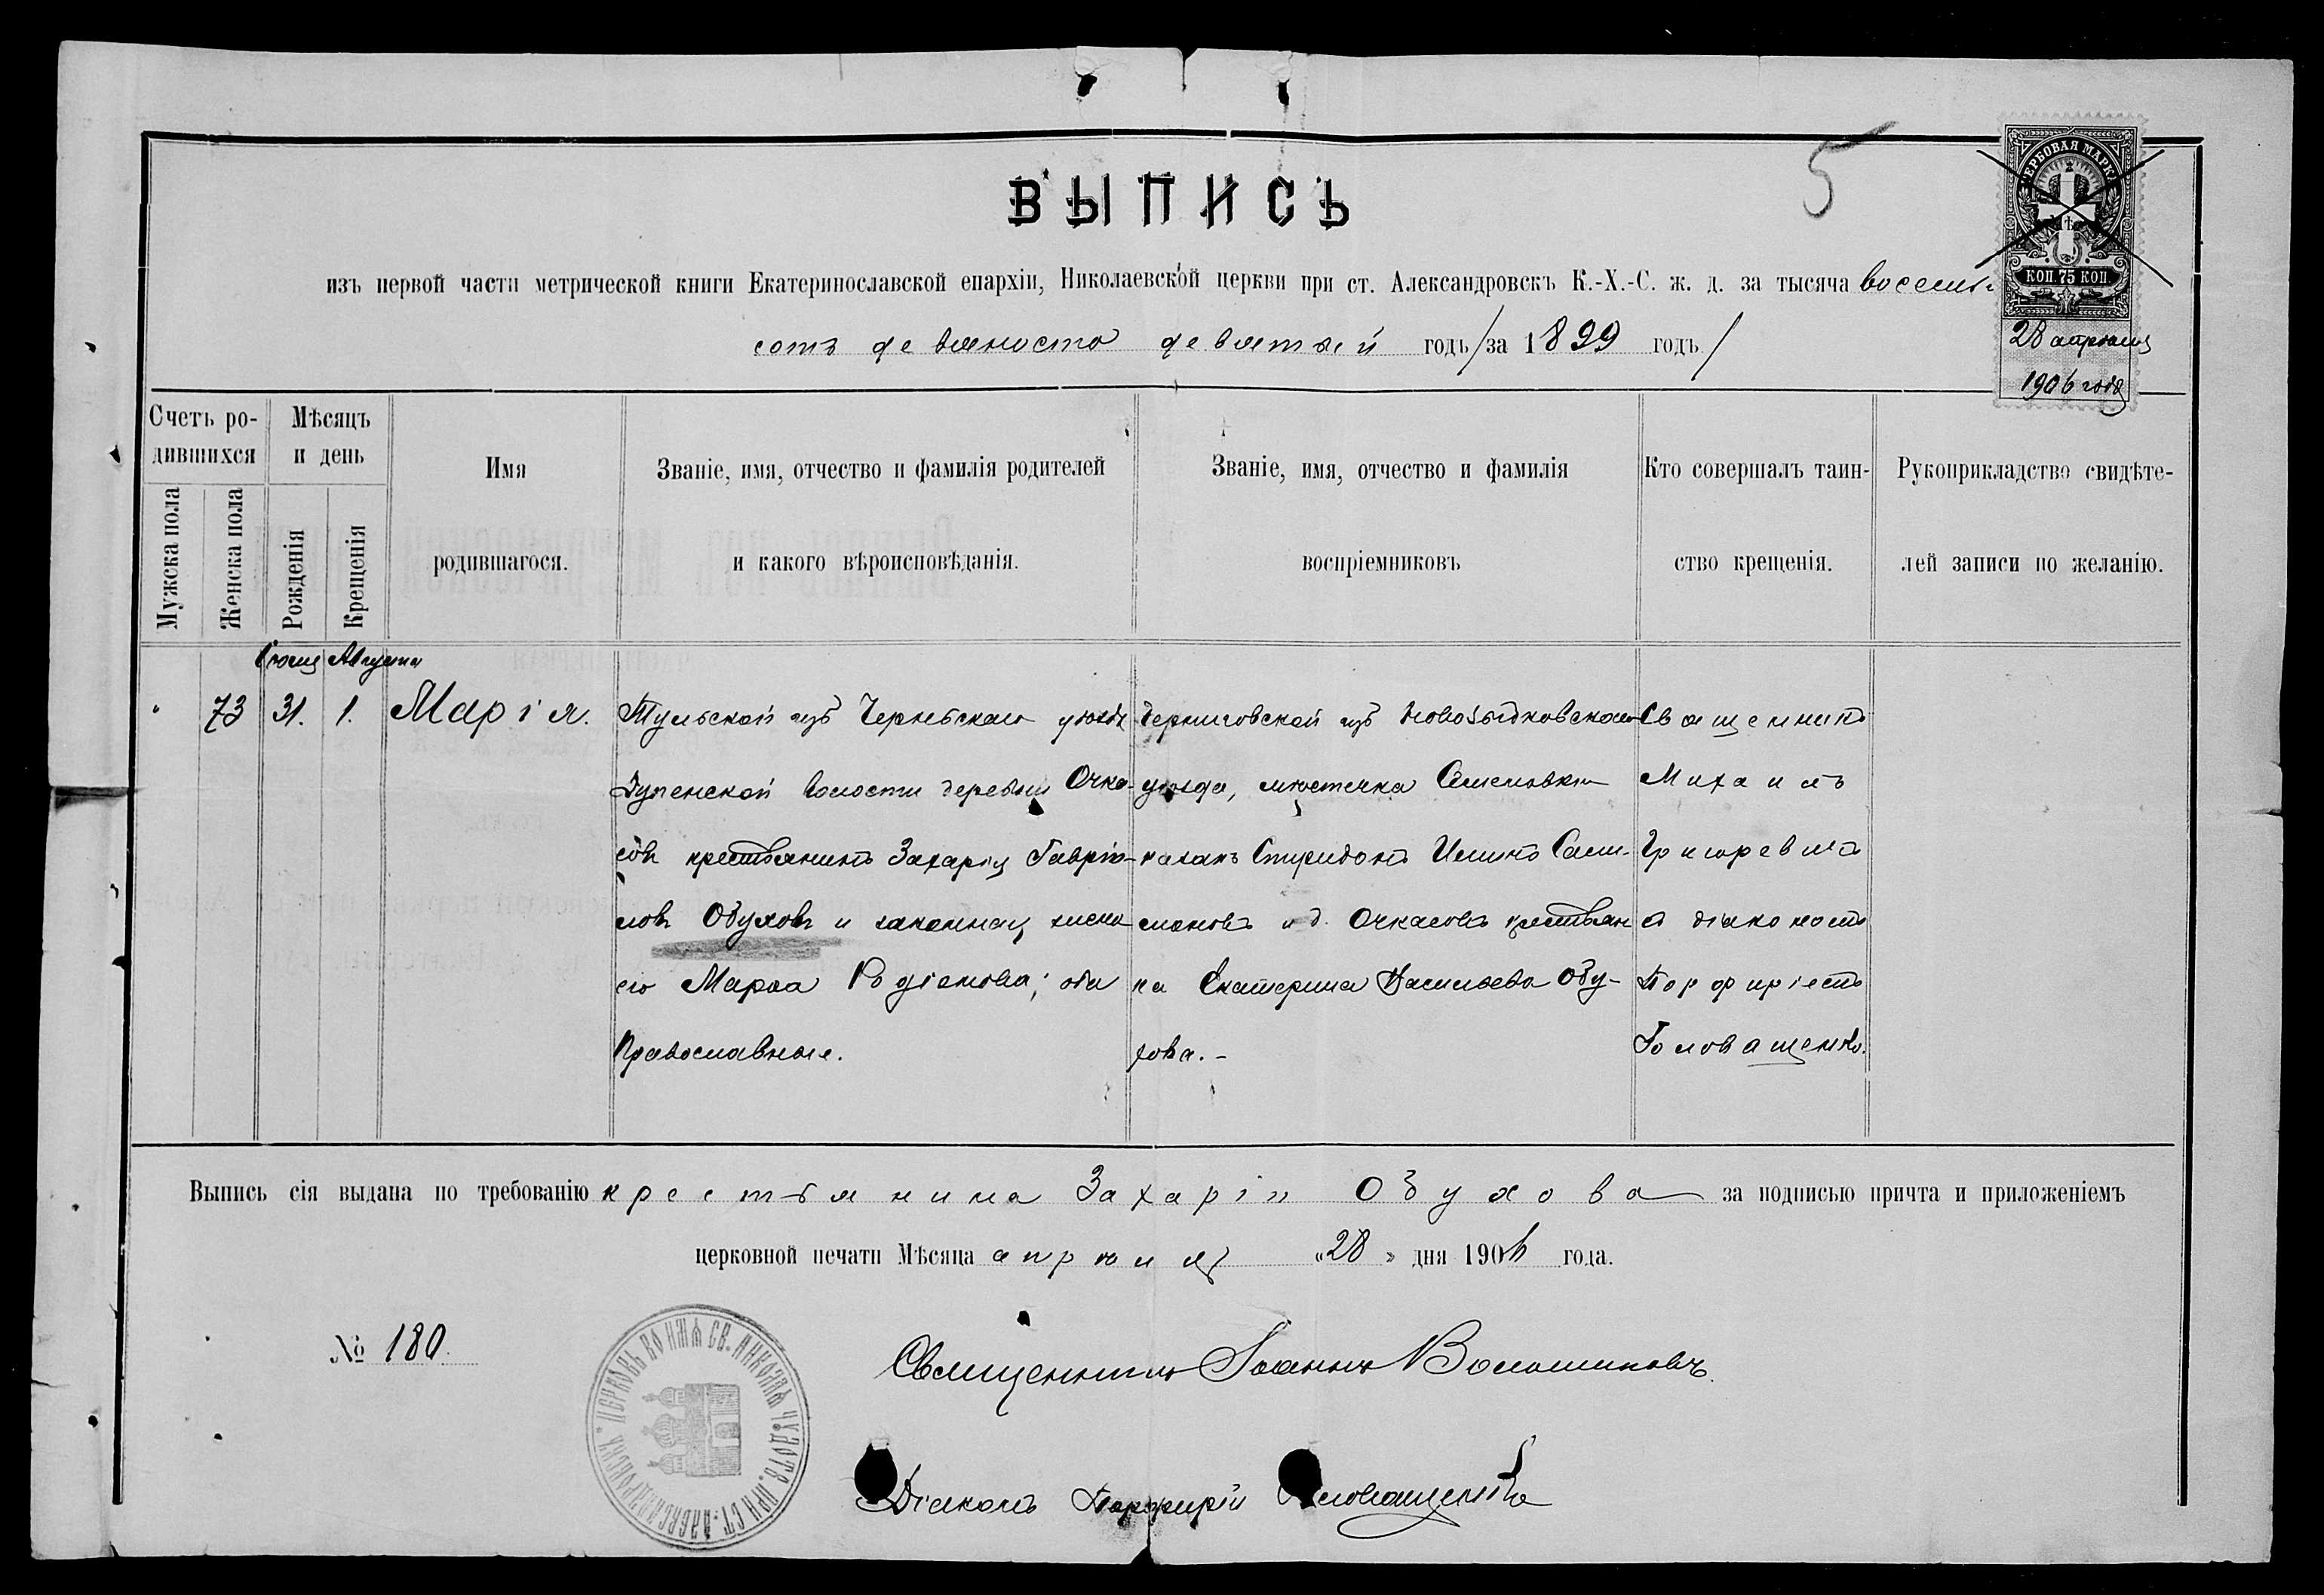 5
ГЕРБОВАЯ МАРКА
КОП. 75 КОП.
28 апрѣля
1906 года
ВЫПИСЬ
изъ первой части метрической книги Екатеринославской епархіи, Николаевской церкви при ст. Александровскъ К.-Х.-С. ж. д. за тысяча восемь-
сотъ девяносто девятый годъ /за 1899 годъ/
Счетъ ро-
дившихся
Мужска пола
Женска пола
Мѣсяцъ
и день
Рожденія
Крещенія
Имя
родившагося.
Званіе, имя, отчество и фамилія родителей
и какого вѣроисповѣданія.
Званіе, имя, отчество и фамилія
воспріемниковъ
Кто совершалъ таин-
ство крещенія.
Рукоприкладство свидѣте-
лей записи по желанію.
Іюля Августа
73 31. 1. Марія.
Тульской губ Чернскаго уѣзда
волости деревни Очка-
совъ крестьянинъ Захарія Гавріи-
ловъ Обуховъ и законная жена
его Марѳа Родіонова; оба
Православные.
Черниговской губ Новозыбковскаго
уѣзда, мѣстечка Семеновки
казакъ Спиридонъ Сам-
соновъ и д. Очкасовъ крестьян
ка Екатерина Васильева Обу-
хова. -
Священникъ
Михаилъ
Григоревичъ
съ діакономъ
Порфиріемъ
Головащенко.
Выпись сія выдана по требованію крестьянина Захарія Обухова за подписью причта и приложеніемъ
церковной печати Мѣсяца апрѣля «28» дня 1906 года.
№ 180.
ЦЕРКОВЬ ВО ИМЯ СВ. НИКОЛАЯ ЧУДОТВ. ПРИ СТ. АЛЕКСАНДРОВСКЪ
Священникъ Іоаннъ Волошиновъ.
Діаконъ Порфирій Головащенко